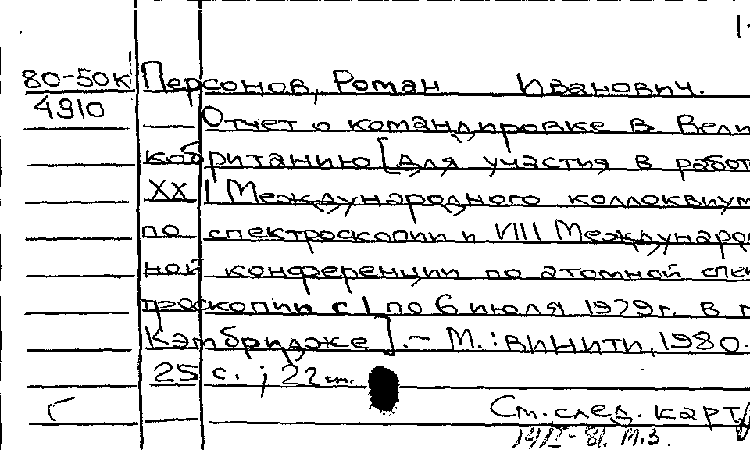 80-50К Персонов, Роман Иванович.
4910 Отчет о командировке в Вели
кобританию [для участия в работ
XXI Международного коллоквиум
по спектроскопии и VIII Междунаро
ной конференции по атомной спек
троскопии с 1 по 6 июля 1979г. в г
Кэмбридже]. – М.: ВИНИТИ, 1980.
25 с. ; 22 см.
Г См. след. карт